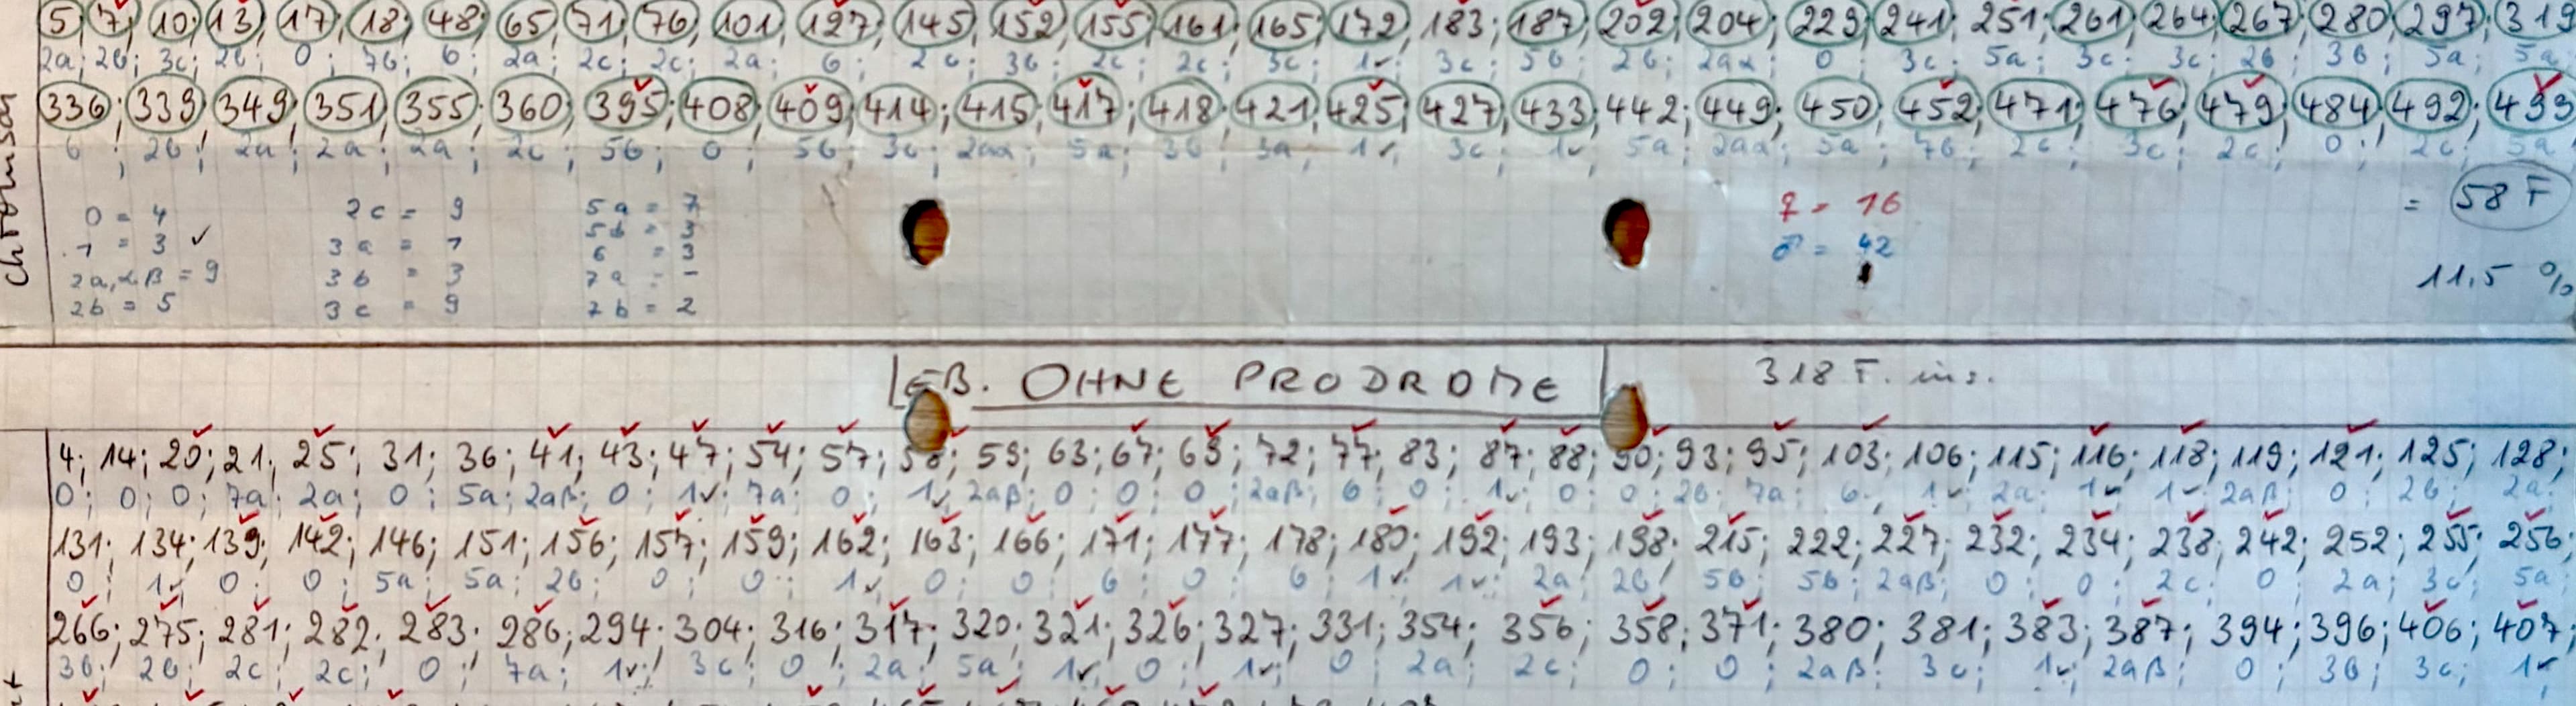 5; 7; 10; 13; 17; 18; 48; 65; 71; 76; 101; 127; 145; 152; 155; 161; 165; 172; 183; 187; 202; 204; 229; 241; 251; 261; 264; 267; 280; 297; 319
2a; 2b; 3c; 2b; 0; 7b; 6; 2a; 2c; 2c; 2a; 6; 2c; 3b; 2c; 2c; 3c; 1; 3c; 5b; 2b; 2aα; 0; 3c; 5a; 3c; 3c; 2b; 3b; 5a; 5a;
336; 339; 349; 351; 355; 360; 395; 408; 409; 414; 415; 417; 418; 421; 425; 427; 433; 442; 449; 450; 452; 471; 476; 479; 484; 492; 499
6; 2b; 2a; 2a; 2a; 2c; 5b; 0; 5b; 3c; 2aα; 5a; 3b; 3a; 1; 3c; 1; 5a; 2aα; 5a; 7b; 2c; 3c; 2c; 0; 2c; 5a
0 = 4 2c = 9 5a = 7 ♀ = 16 = 58 F
1 = 3 ✓ 3a = 1 5b = 3 ♂ = 42
2a,αβ = 9 3b = 3 6 = 3 11,5 %
2b = 5 3c = 9 7a = -
7b = 2
EB. OHNE PRODROME 318 F. ins.
4; 14; 20; 21; 25; 31; 36; 41; 43; 47; 54; 57; 58; 59; 63; 67; 69; 72; 77; 83; 87; 88; 90; 93; 95; 103; 106; 115; 116; 118; 119; 121; 125; 128;
0; 0; 0; 7a; 2a; 0; 5a; 2aβ; 0; 1✓; 7a; 0; 1✓; 2aβ; 0; 0; 0; 2aβ; 6; 0; 1✓; 0; 0; 2b; 7a; 6; 1✓; 2a; 1✓; 1✓; 2aβ; 0; 2b; 2a;
131; 134; 139; 142; 146; 151; 156; 157; 159; 162; 163; 166; 171; 177; 178; 180; 192; 193; 198; 215; 222; 227; 232; 234; 238; 242; 252; 255; 256;
0; 1✓; 0; 0; 5a; 5a; 2b; 0; 0; 1✓; 0; 0; 6; 0; 6; 1✓; 1✓; 2a; 2b; 5b; 5b; 2aβ; 0; 0; 2c; 0; 2a; 3c; 5a
266; 275; 281; 282; 283; 286; 294; 304; 316; 317; 320; 321; 326; 327; 331; 354; 356; 358; 371; 380; 381; 383; 387; 394; 396; 406; 407;
3b; 2b; 2c; 2c; 0; 7a; 1✓; 3c; 0; 2a; 5a; 1✓; 0; 1✓; 0; 2a; 2c; 0; 0; 2aβ; 3c; 1✓; 2aβ; 0; 3b; 3c; 1✓